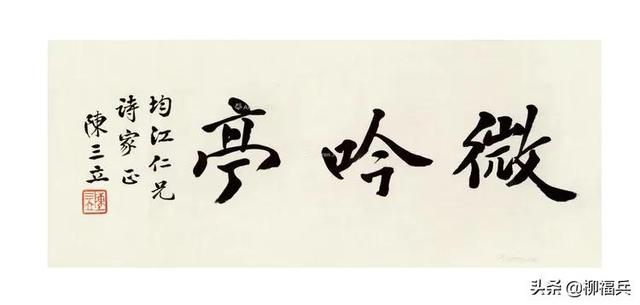 微吟亭
均江仁兄
诗家正
陳三立
头条 @柳福兵